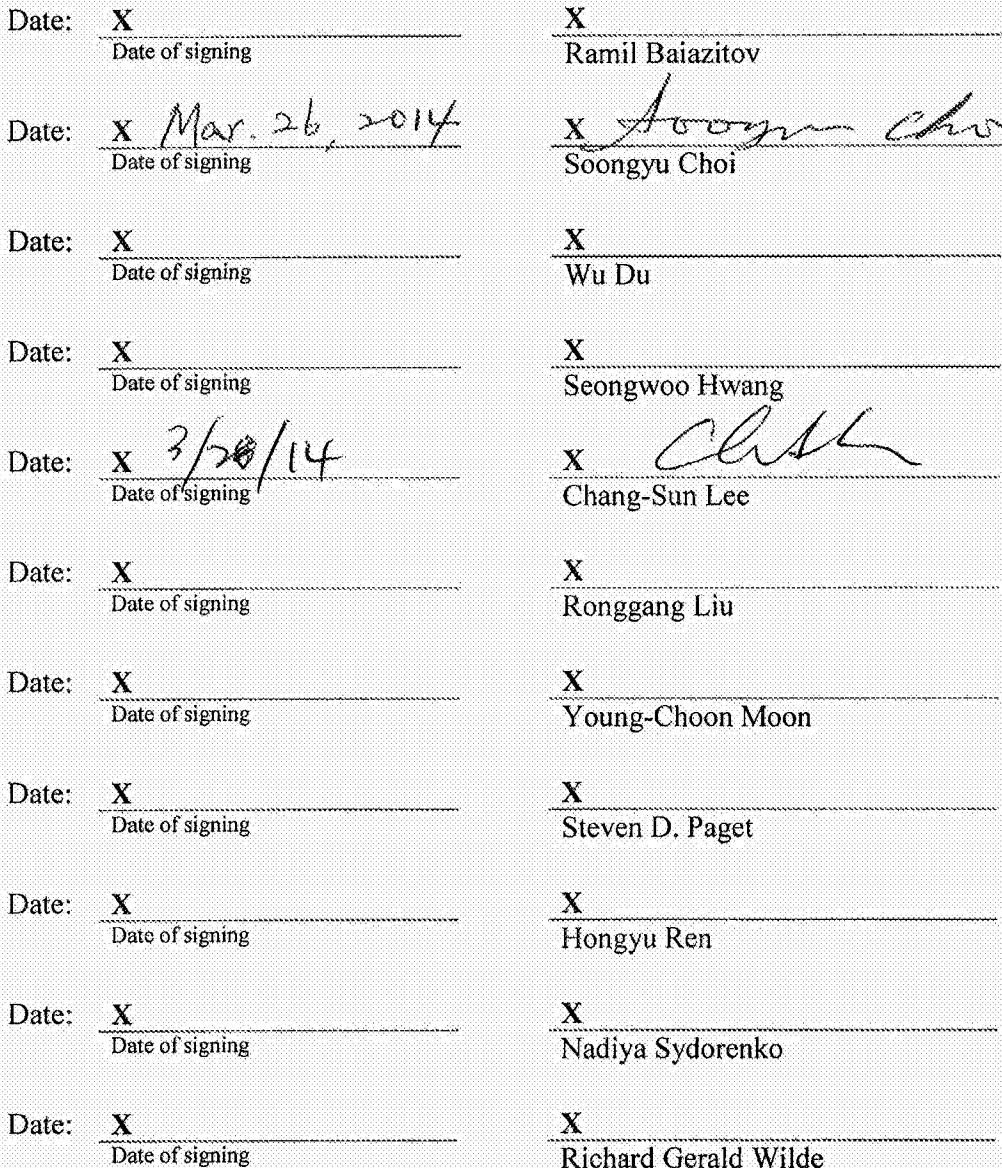 Date: X X
Date of signing Ramil Baiazitov
Date: X Mar. 26, 2014 X Soongyu Cho
Date of signing Soongyu Choi
Date: X X
Date of signing Wu Du
Date: X X
Date of signing Seongwoo Hwang
Date: X X
Date of signing Chang-Sun Lee
Date: X X
Date of signing Ronggang Liu
Date: X X
Date of signing Young-Choon Moon
Date: X X
Date of signing Steven D. Paget
Date: X X
Date of signing Hongyu Ren
Date: X X
Date of signing Nadiya Sydorenko
Date: X X
Date of signing Richard Gerald Wilde